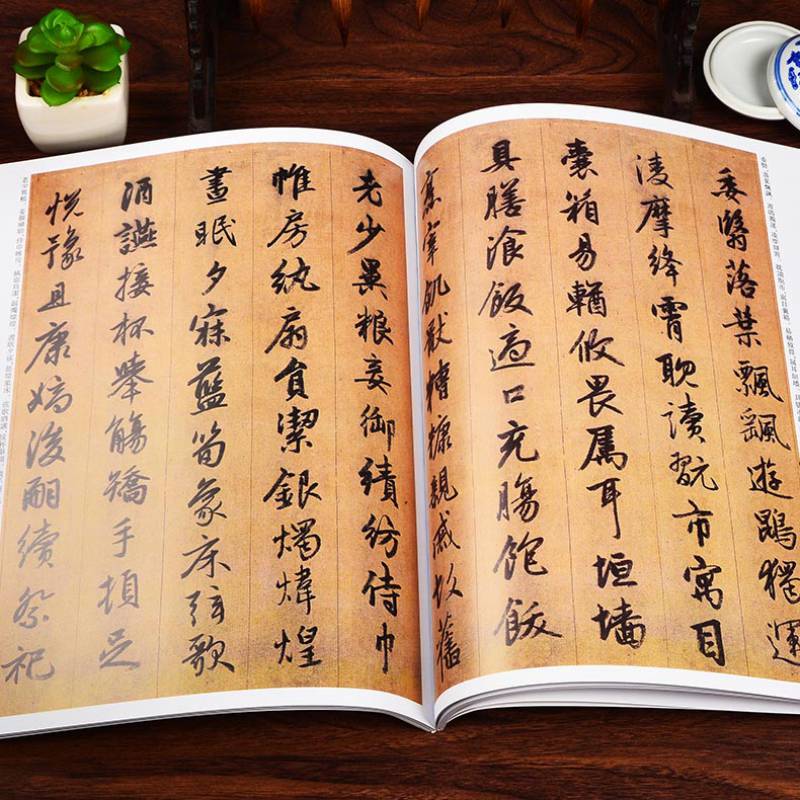 委翳落葉飄飖遊鵾獨運
淩摩絳霄耽讀翫市寓目
囊箱易輶攸畏屬耳垣墻
具膳飡飯適口充腸飽飫
烹宰飢猒糟糠親戚故舊
老少異粮妾御績紡侍巾
帷房紈扇員潔銀燭煒煌
晝眠夕寐藍筍象床弦歌
酒讌接杯舉觴矯手頓足
悅豫且康嫡後嗣續祭祀